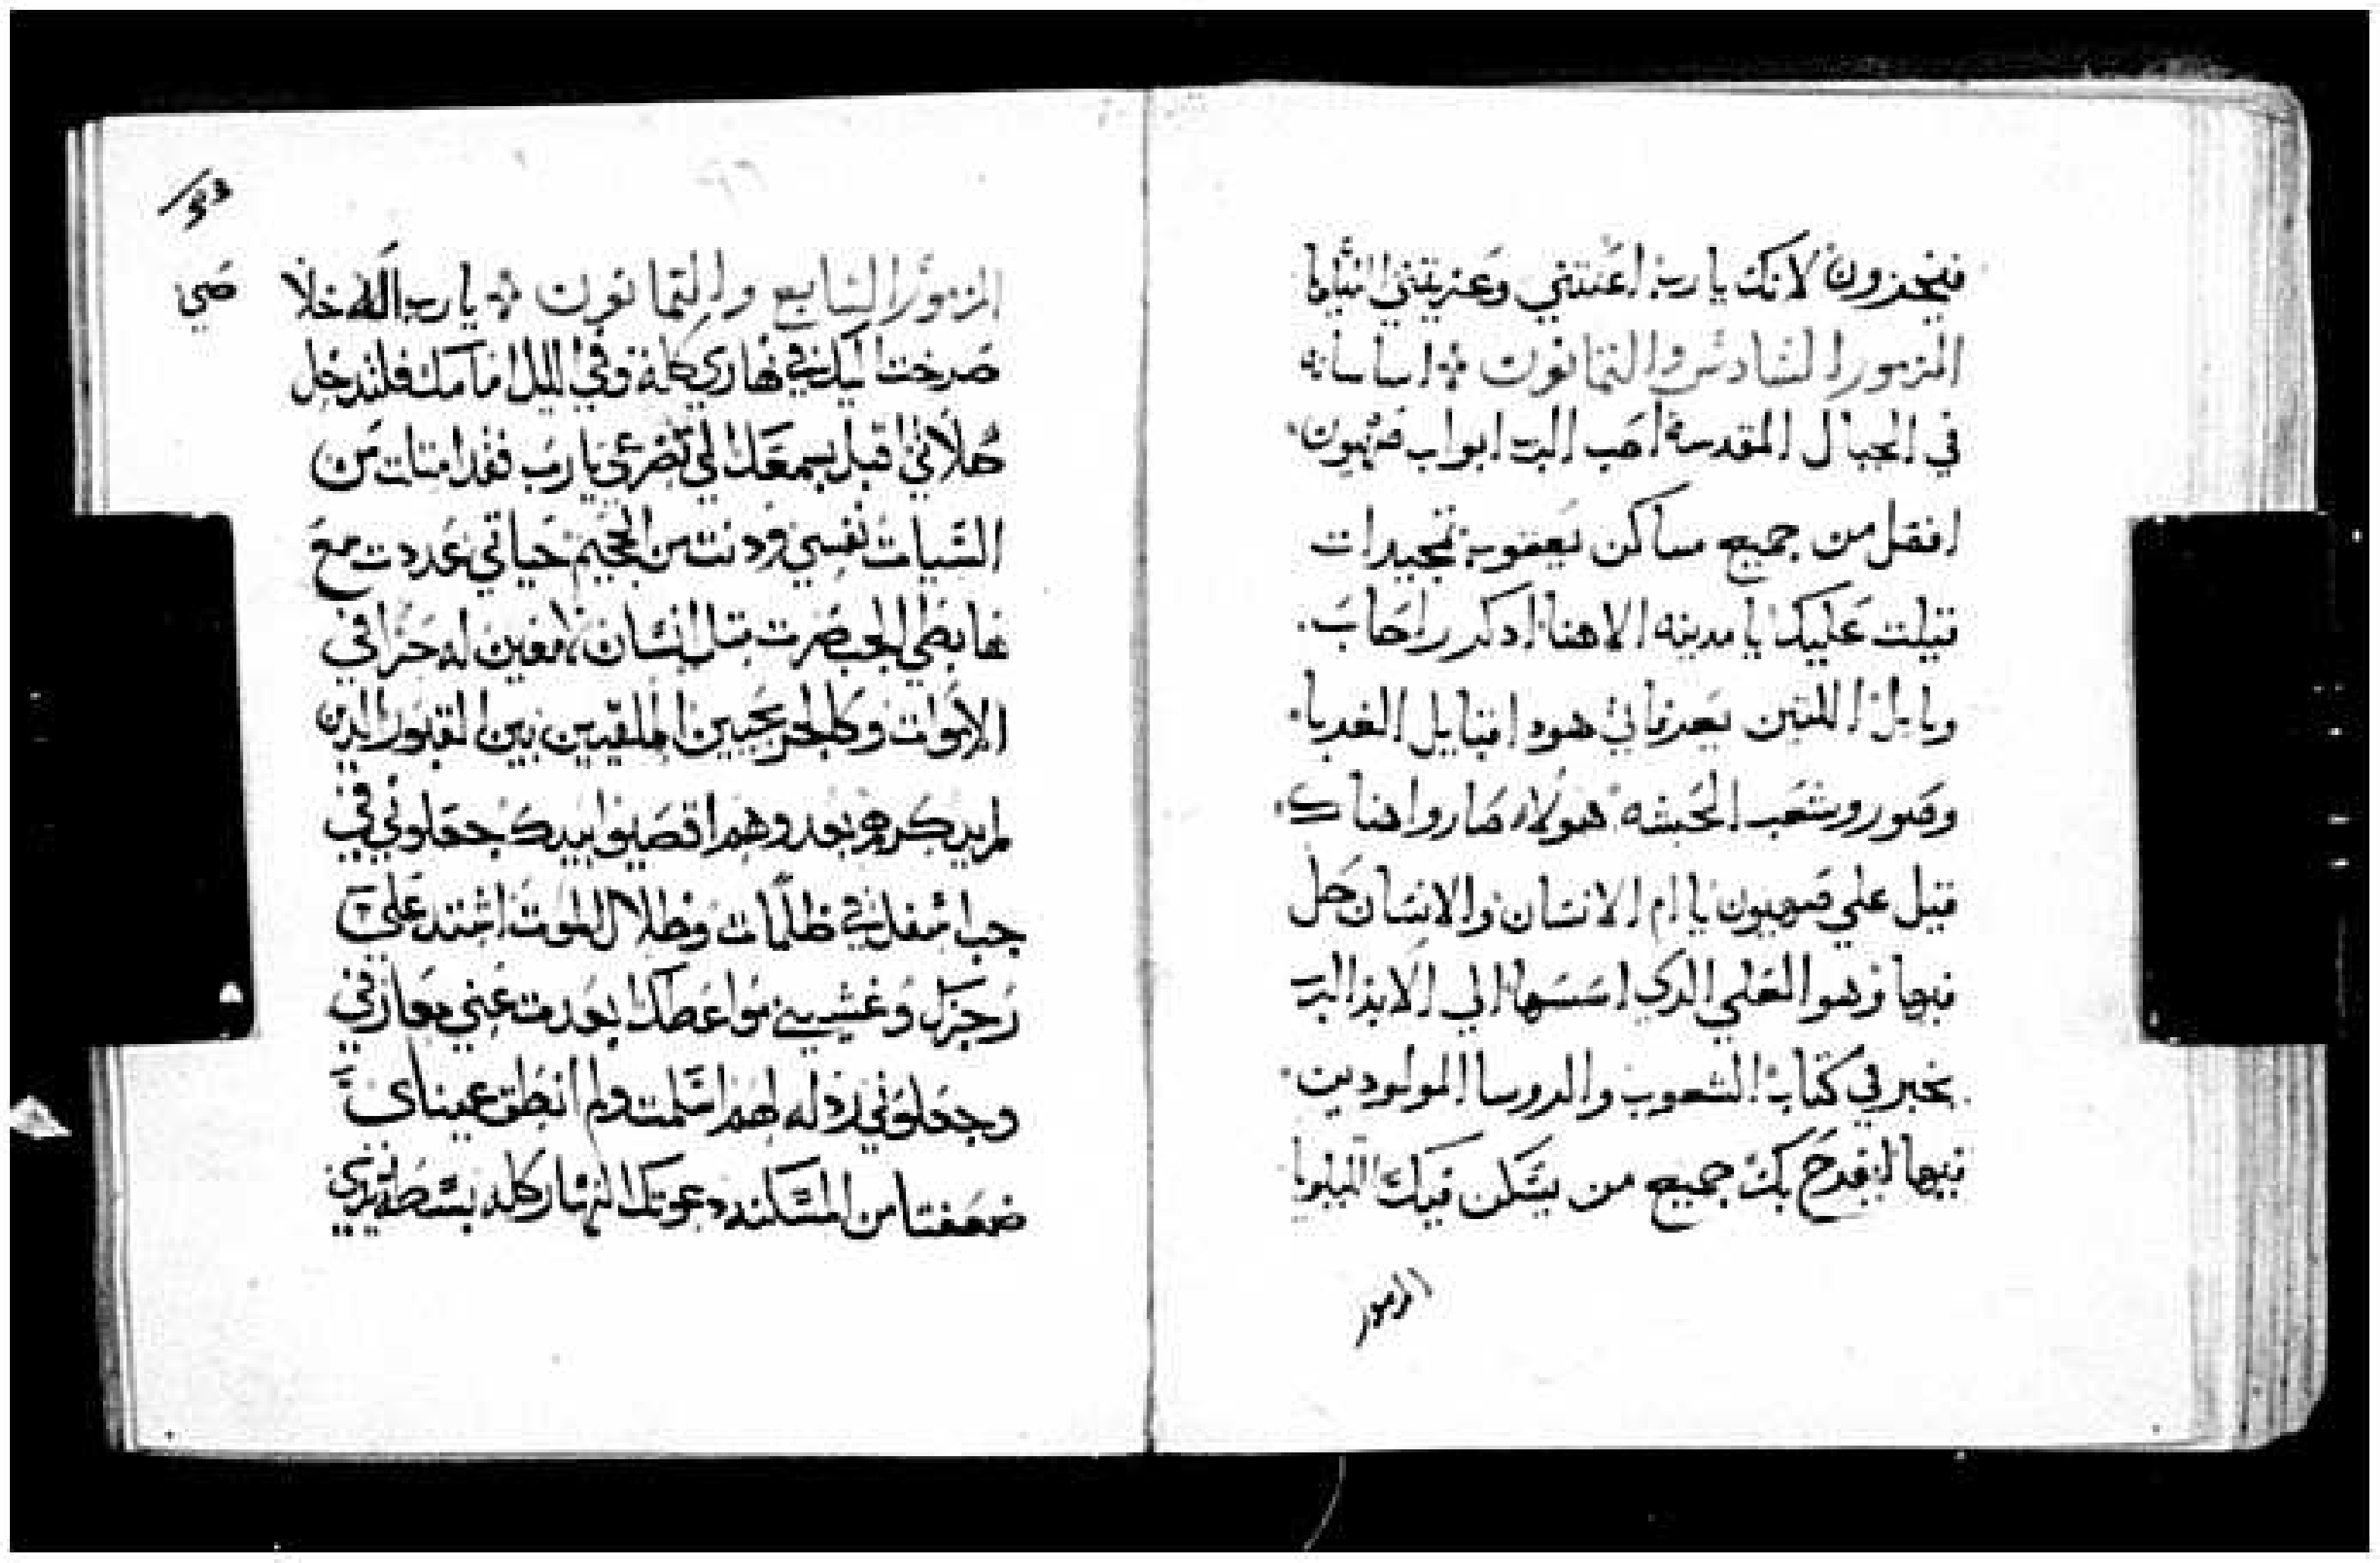 فيخزون لانك يارب اعنتني وعزيتني الليلويا
المزمور السادس والثمانون اساساته
في الجبال المقدسة احب الرب ابواب صهيون
افضل من جميع مساكن يعقوب تمجيدات
قيلت عليك يا مدينه الاهنا اذكر راحاب
وبابل اللتين يعرفاني هودا قبايل الغربا
وصور وشعب الحبشه هولاء صاروا هناك
قيل علي صهيون يا ام الانسان والانسان حل
فيها وهو العلي الذي اسسها الي الابد الرب
يخبر في كتاب الشعوب والروسا المولودين
فيها ليفرح بك جميع من يسكن فيك الليلويا
المزمور
المزمور السابع والثمانون يارب اله خلا
صرخت اليك في نهاري كله وفي الليل امامك فلتدخل
صلاتي اقبل بسمعك الي تضرعي يارب فقد امتلت من
السيات نفسي ودنت من الجحيم حياتي عددت مع
هابطي الجب صرت مثل انسان لا معين له حرا في
الاموات وكالجر يحيين الملقيين بين القبور الدين
لم يدكرهم بعد وهم اقصيوا بيدك جعلوني في
جب اسفل في ظلمات وظلال الموت اشتد علي
رجزك وغشيني مواعصك ابعدت عني معارفي
وجعلوني رذله لهم اسلمت ولم انطق عيناي
ضعفتا من المسكنه دعوتك النهار كله بسطت يدي